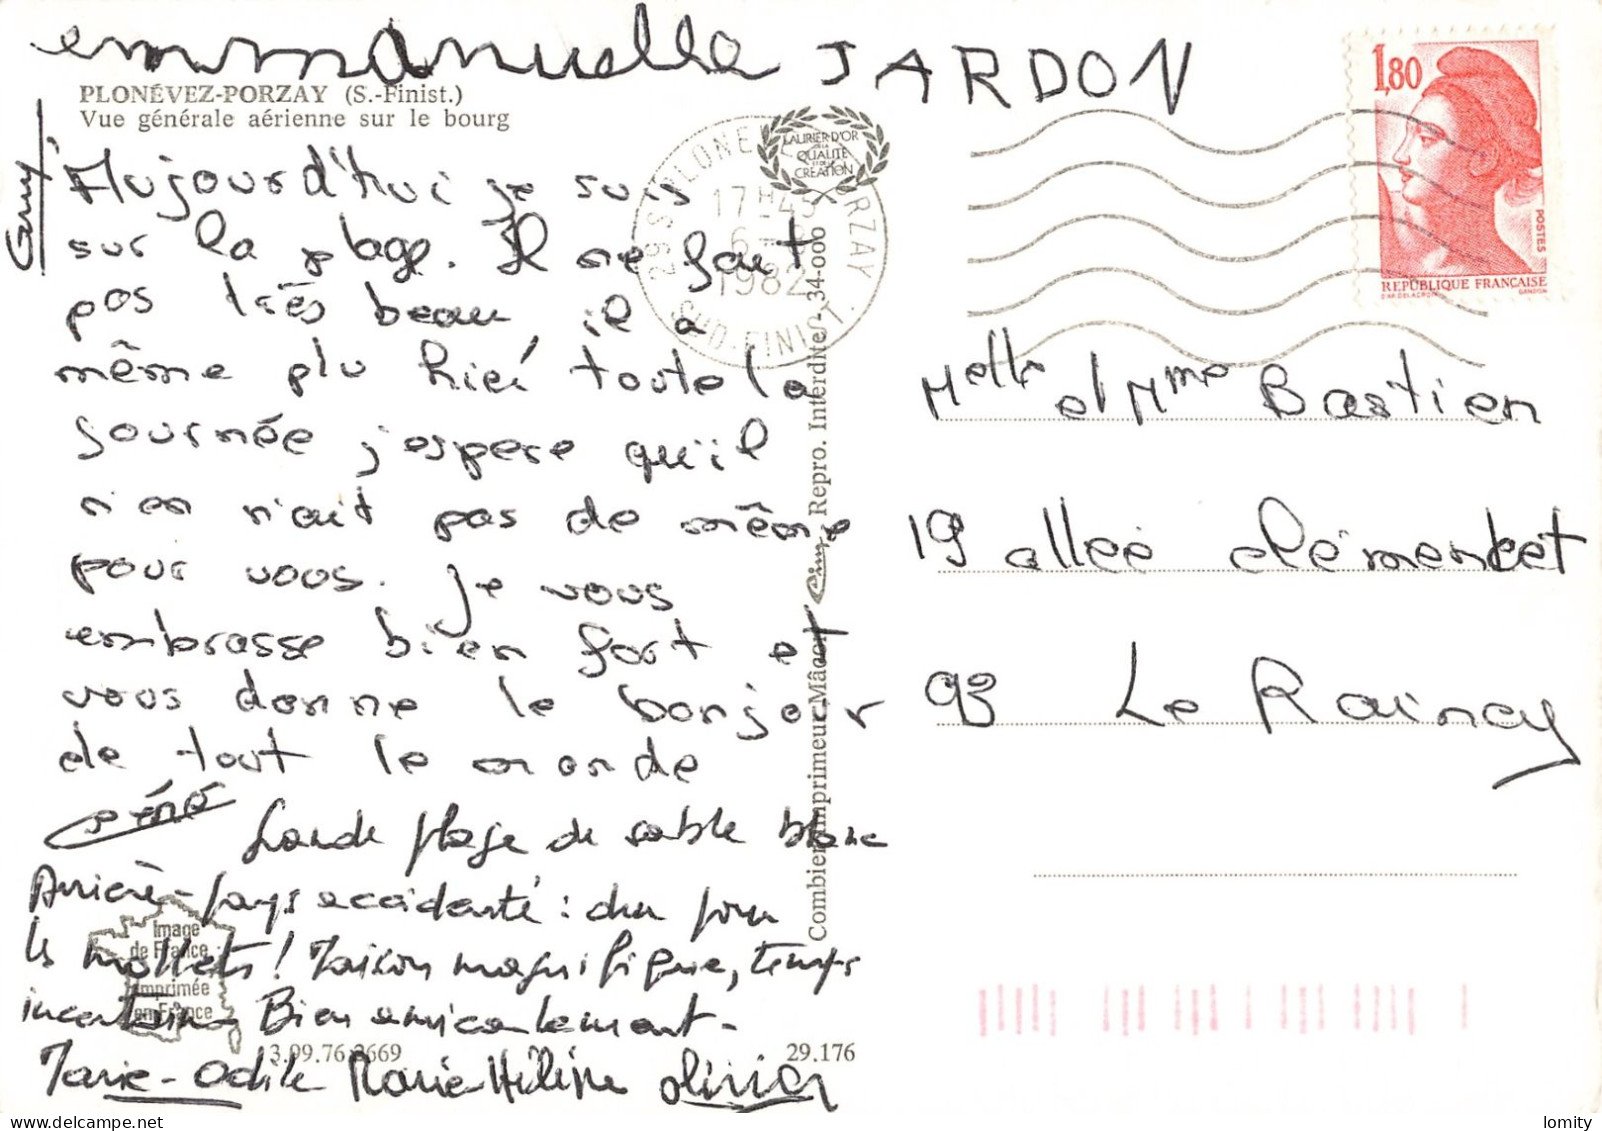 emmanuelle JARDON
PLONÉVEZ-PORZAY (S.-Finist.)
Vue générale aérienne sur le bourg
Aujourd'hui je suis
sur la plage. Il ne fait
pas très beau, il a
même plu hier toute la
journée j'espere qu'il
n'en n'ait pas de même
pour vous. Je vous
embrasse bien fort et
vous donne le bonjour
de tout le monde
Géné
Grande plage de sable blanc
Arrière-pays accidenté : dur pour
les mollets! Maison magnifique, temps
incertain. Bien amicalement-
Marie-Odile Marie Hélène Olivier
Image
de France
imprimée
en France
3.09.76.2669
29.176
LAURIER D'OR
DE LA
QUALITÉ
ET DE LA
CRÉATION
29 S PLONEVEZ PORZAY
17H45
6-8
1982
SUD-FINIST.
Combier Imprimeur Mâcon Cim Repro. Interdite - 34-000
1,80
POSTES
RÉPUBLIQUE FRANÇAISE
D'AP. DELACROIX GANDON
Melle et Mme Bastien
19 allée clémencet
93 Le Raincy
lomity